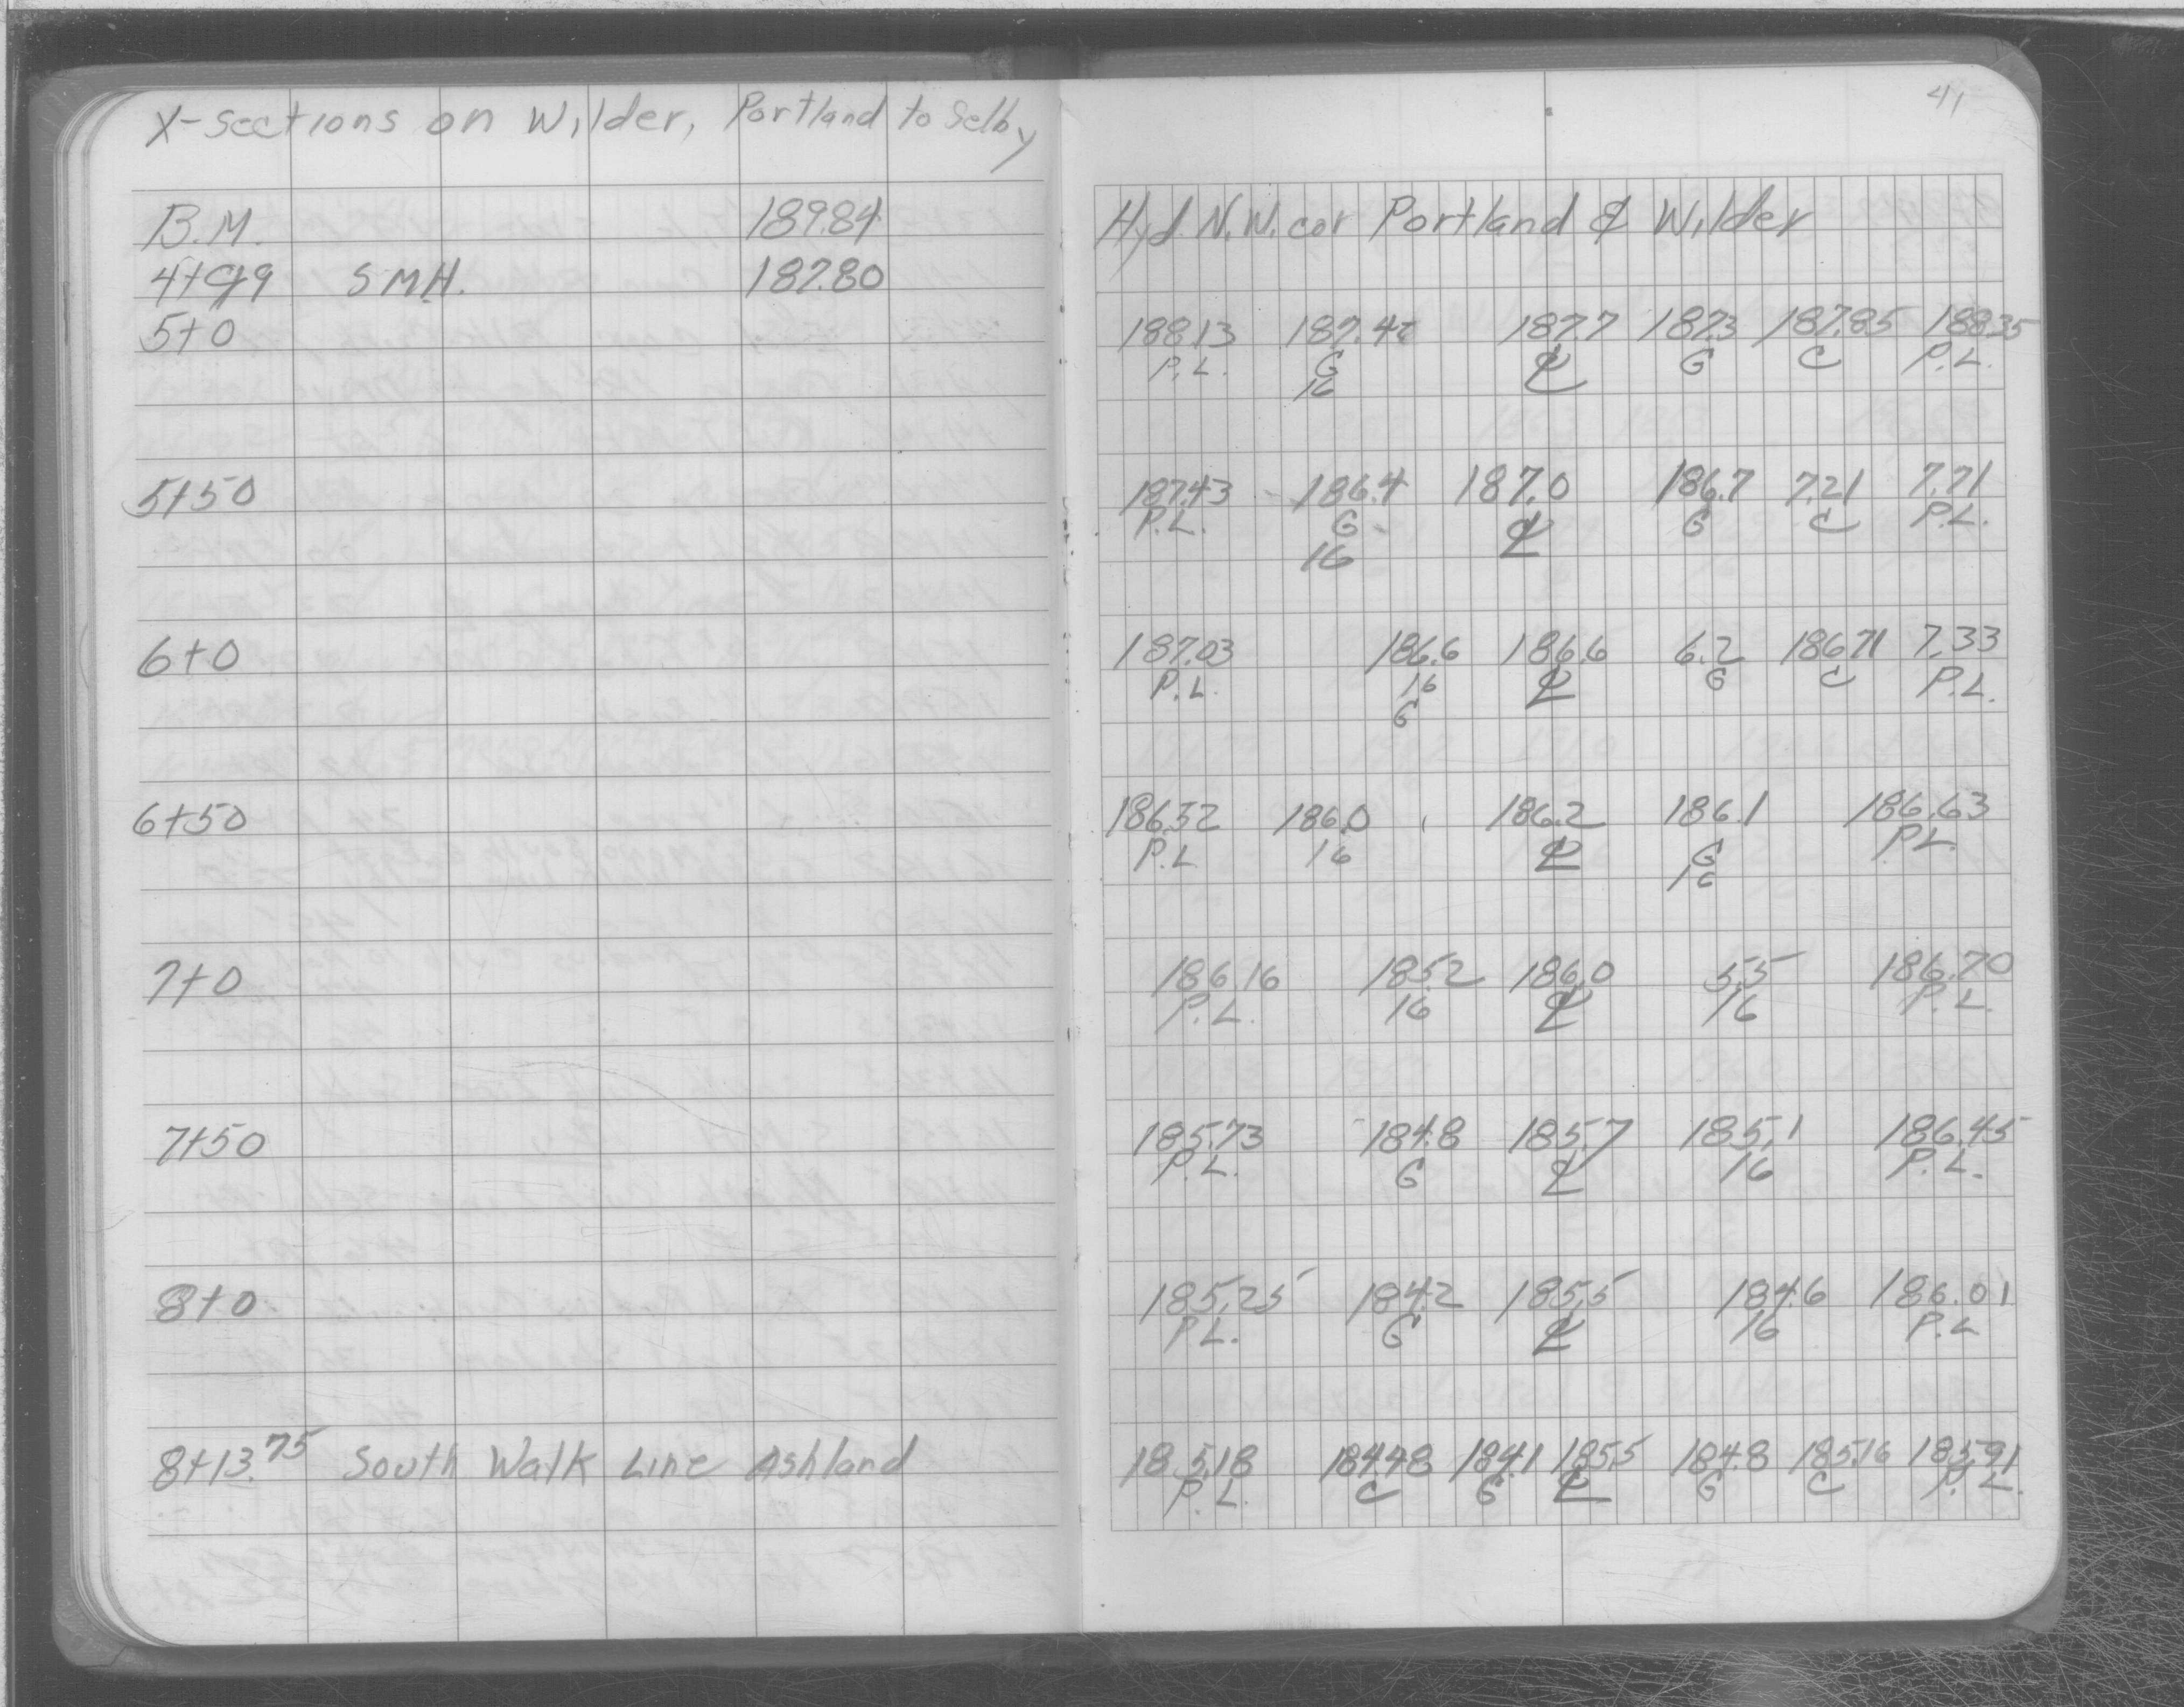 41
X-sections on Wilder, Portland to Selby
B.M. 189.84 Hyd. N.W. cor Portland & Wilder
4+99 S M.H. 187.80
5+0 188.13 187.42 187.7 187.3 187.85 188.35
P.L. G ℄ G C P.L.
16
5+50 187.43 186.4 187.0 186.7 7.21 7.71
P.L. G ℄ G C P.L.
16
6+0 187.03 186.6 186.6 6.2 186.71 7.33
P.L. 16 ℄ G C P.L.
G
6+50 186.52 186.0 186.2 186.1 186.63
P.L 16 ℄ G P.L.
16
7+0 186.16 185.2 186.0 5.5 186.70
P.L. 16 ℄ 16 P.L.
7+50 185.73 184.8 185.7 185.1 186.45
P.L. G ℄ 16 P.L.
8+0 185.25 184.2 185.5 184.6 186.01
P.L. G ℄ 16 P.L
8+13.75 South Walk Line Ashland 185.18 184.48 184.1 185.5 184.8 185.16 185.91
P.L. C G ℄ G C P.L.